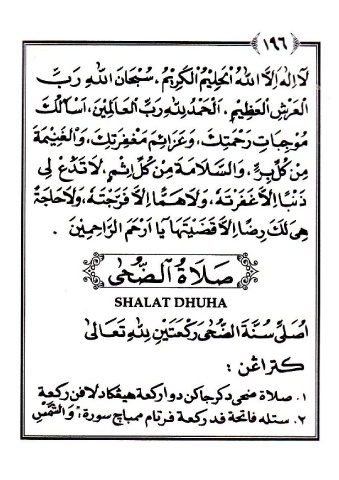 ﴿١٩٦﴾
لَآ اِلٰهَ اِلَّا اللهُ الْحَلِيْمُ الْكَرِيْمُ، سُبْحَانَ اللهِ رَبِّ
الْعَرْشِ الْعَظِيْمِ، اَلْحَمْدُ لِلّٰهِ رَبِّ الْعَالَمِيْنَ، اَسْأَلُكَ
مُوْجِبَاتِ رَحْمَتِكَ، وَعَزَائِمَ مَغْفِرَتِكَ، وَالْغَنِيْمَةَ
مِنْ كُلِّ بِرٍّ، وَالسَّلَامَةَ مِنْ كُلِّ اِثْمٍ، لَا تَدَعْ لِى
ذَنْبًا اِلَّا غَفَرْتَهُ، وَلَا هَمًّا اِلَّا فَرَّجْتَهُ، وَلَا حَاجَةً
هِىَ لَكَ رِضًا اِلَّا قَضَيْتَهَا يَا اَرْحَمَ الرَّاحِمِيْنَ.
صَلَاةُ الضُّحٰى
SHALAT DHUHA
اُصَلِّى سُنَّةَ الضُّحٰى رَكْعَتَيْنِ لِلّٰهِ تَعَالٰى
كتراڠن :
١. صلاة ضحى دكرجاكن دوا ركعة هيڠكا دلافن ركعة
٢. ستله فاتحة فد ركعة فرتام ممباچ سورة: وَالشَّمْسِ